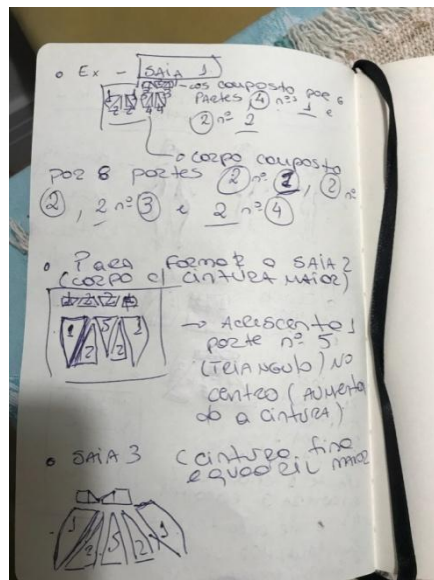 Ex - SAIA 1
- cós composto por 6
partes, 4 nº 1 e
2 nº 2
2 2 4 4
o corpo composto
por 8 partes 2 nº 1, 2 nº
2, 2 nº 3 e 2 nº 4
Para formar a SAIA 2
(corpo c/ cintura maior)
1 2 5 2 1
→ Acrescento 1
parte nº 5
(TRIANGULO) NO
centro (AUMENTA
a cintura)
SAIA 3 (cintura fina
e quadril maior
1 2 5 2 1